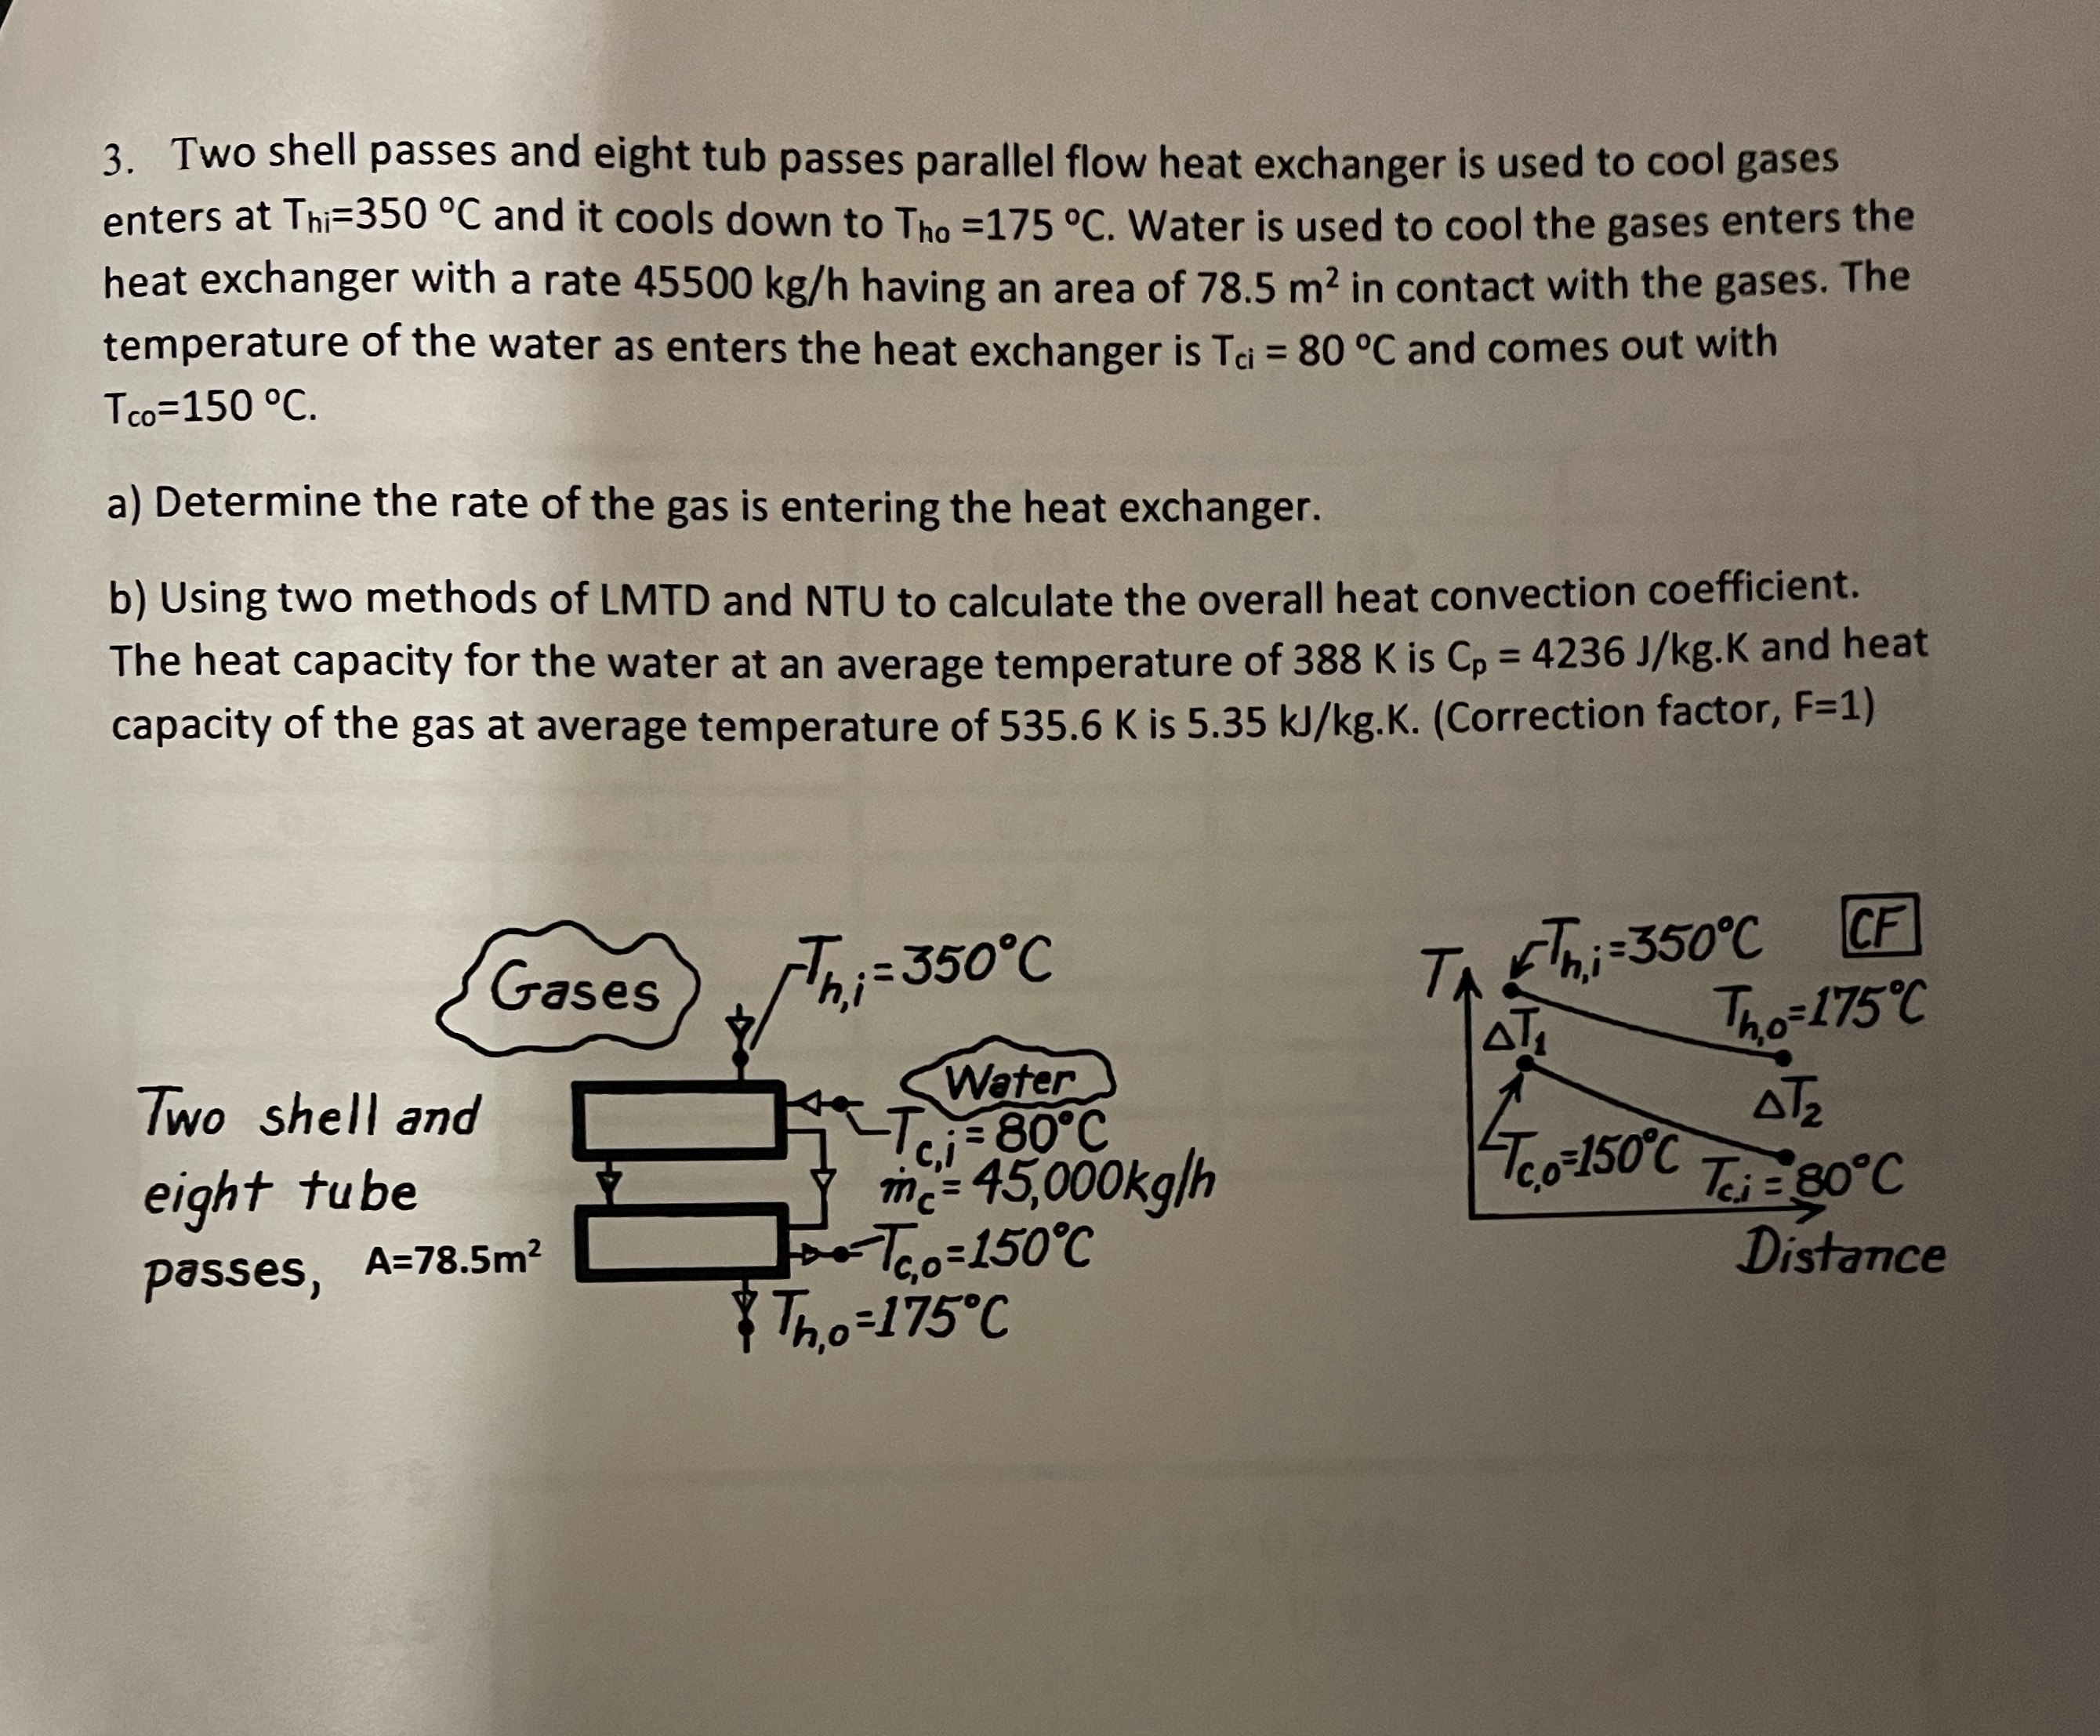 3. Two shell passes and eight tub passes parallel flow heat exchanger is used to cool gases
enters at Thi=350 ºC and it cools down to Tho =175 ºC. Water is used to cool the gases enters the
heat exchanger with a rate 45500 kg/h having an area of 78.5 m² in contact with the gases. The
temperature of the water as enters the heat exchanger is Tci = 80 ºC and comes out with
Tco=150 ºC.
a) Determine the rate of the gas is entering the heat exchanger.
b) Using two methods of LMTD and NTU to calculate the overall heat convection coefficient.
The heat capacity for the water at an average temperature of 388 K is Cp = 4236 J/kg.K and heat
capacity of the gas at average temperature of 535.6 K is 5.35 kJ/kg.K. (Correction factor, F=1)
Gases
Th,i=350°C
Water
Tc,i=80°C
ṁc=45,000kg/h
Tc,o=150°C
Th,o=175°C
Two shell and
eight tube
passes, A=78.5m²
T
Th,i=350°C
CF
Th,o=175°C
ΔT₁
ΔT₂
Tc,o=150°C
Tc,i=80°C
Distance